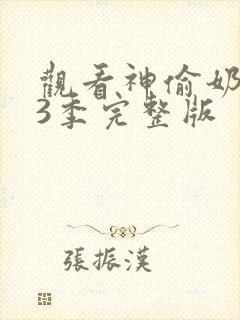 觀看神偷奶
3季完整版
張振漢